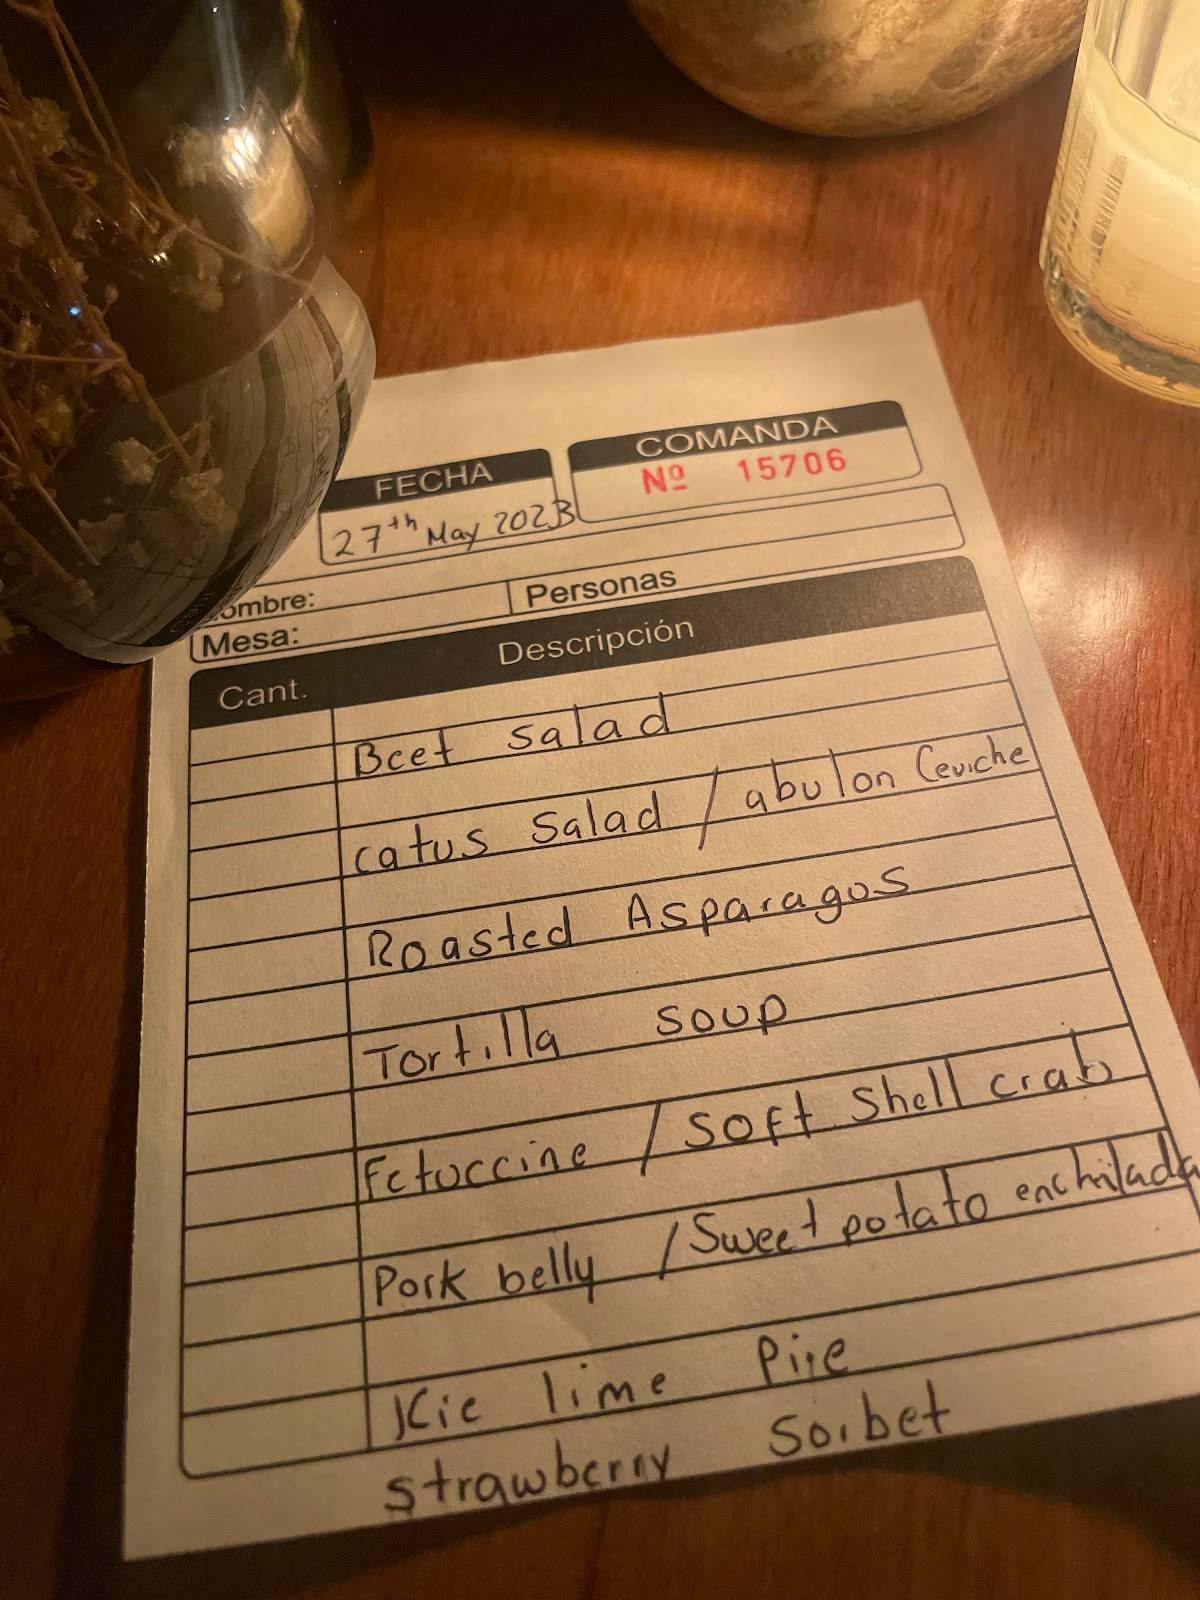 FECHA
COMANDA
Nº 15706
27th May 2023
ombre:
Personas
Mesa:
Cant.
Descripción
Beet salad
catus salad / abulon Ceviche
Roasted Asparagus
Tortilla soup
Fetuccine / soft shell crab
Pork belly / Sweet potato enchilada
Kie lime Piie
strawberry Sorbet